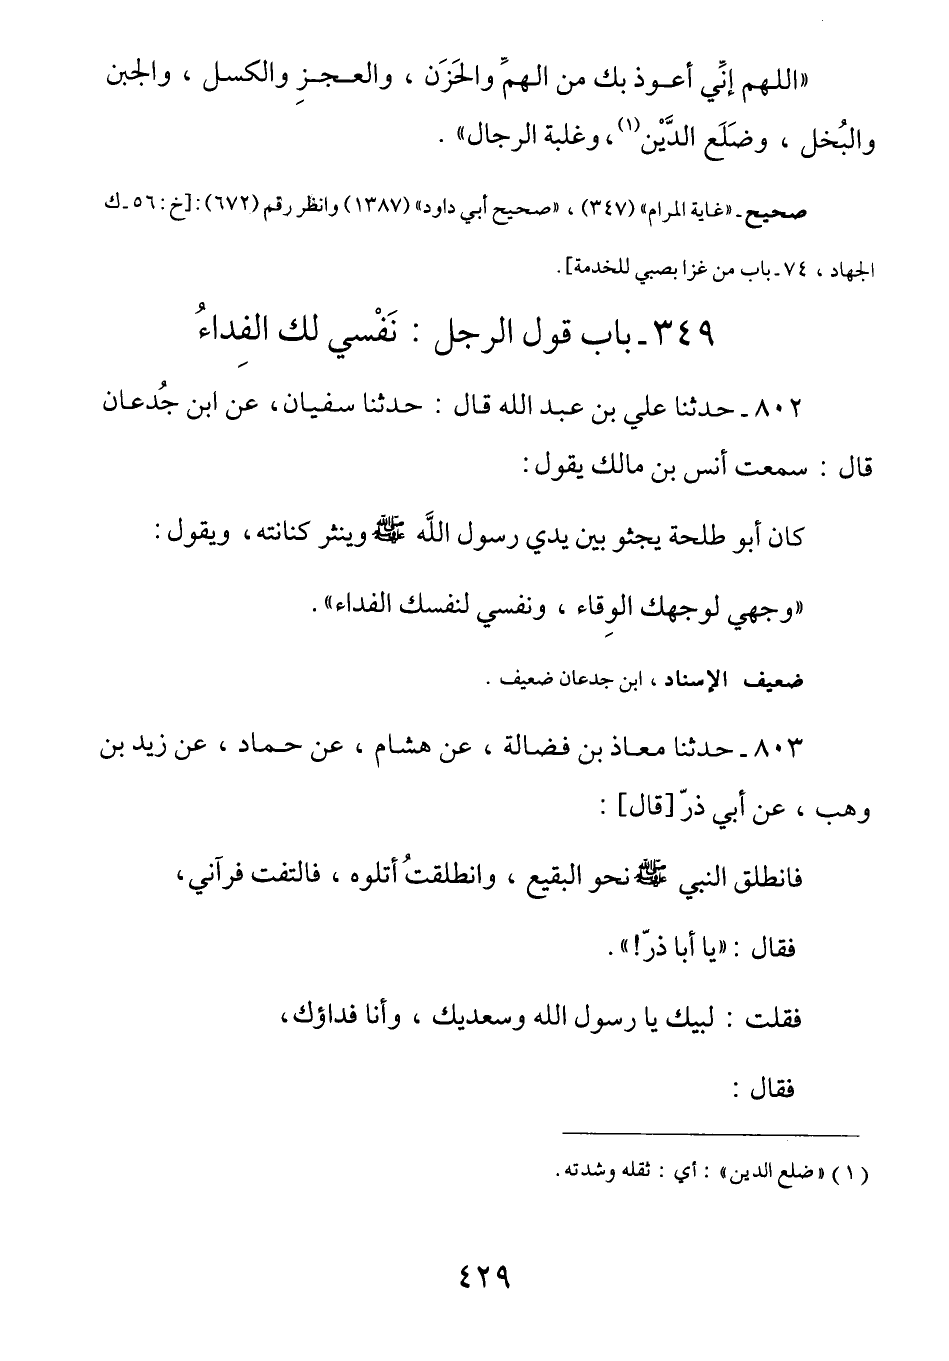 «اللهم إنِّي أعوذ بك من الهمِّ والحَزَن ، والعجزِ والكسل ، والجبن
والبُخل ، وضَلَع الدَّيْن(١)، وغلبة الرجال» .
صحيح ـ «غاية المرام» (٣٤٧) ، «صحيح أبي داود» (١٣٨٧) وانظر رقم (٦٧٢) : [خ : ٥٦ ـ ك
الجهاد ، ٧٤ ـ باب من غزا بصبي للخدمة] .
٣٤٩ ـ باب قول الرجل : نَفْسي لك الفِداءُ
٨٠٢ ـ حدثنا علي بن عبد الله قال : حدثنا سفيان، عن ابن جُدعان
قال : سمعت أنس بن مالك يقول :
كان أبو طلحة يجثو بين يدي رسول اللَّه ﷺ وينثر كنانته، ويقول :
«وجهي لوجهك الوِقاء ، ونفسي لنفسك الفداء» .
ضعيف الإسناد ، ابن جدعان ضعيف .
٨٠٣ ـ حدثنا معاذ بن فضالة ، عن هشام ، عن حماد ، عن زيد بن
وهب ، عن أبي ذرّ [قال] :
فانطلق النبي ﷺ نحو البقيع ، وانطلقتُ أتلوه ، فالتفت فرآني،
فقال : «يا أبا ذرّ!» .
فقلت : لبيك يا رسول الله وسعديك ، وأنا فداؤك،
فقال :
(١) «ضلع الدين» : أي : ثقله وشدته .
٤٢٩